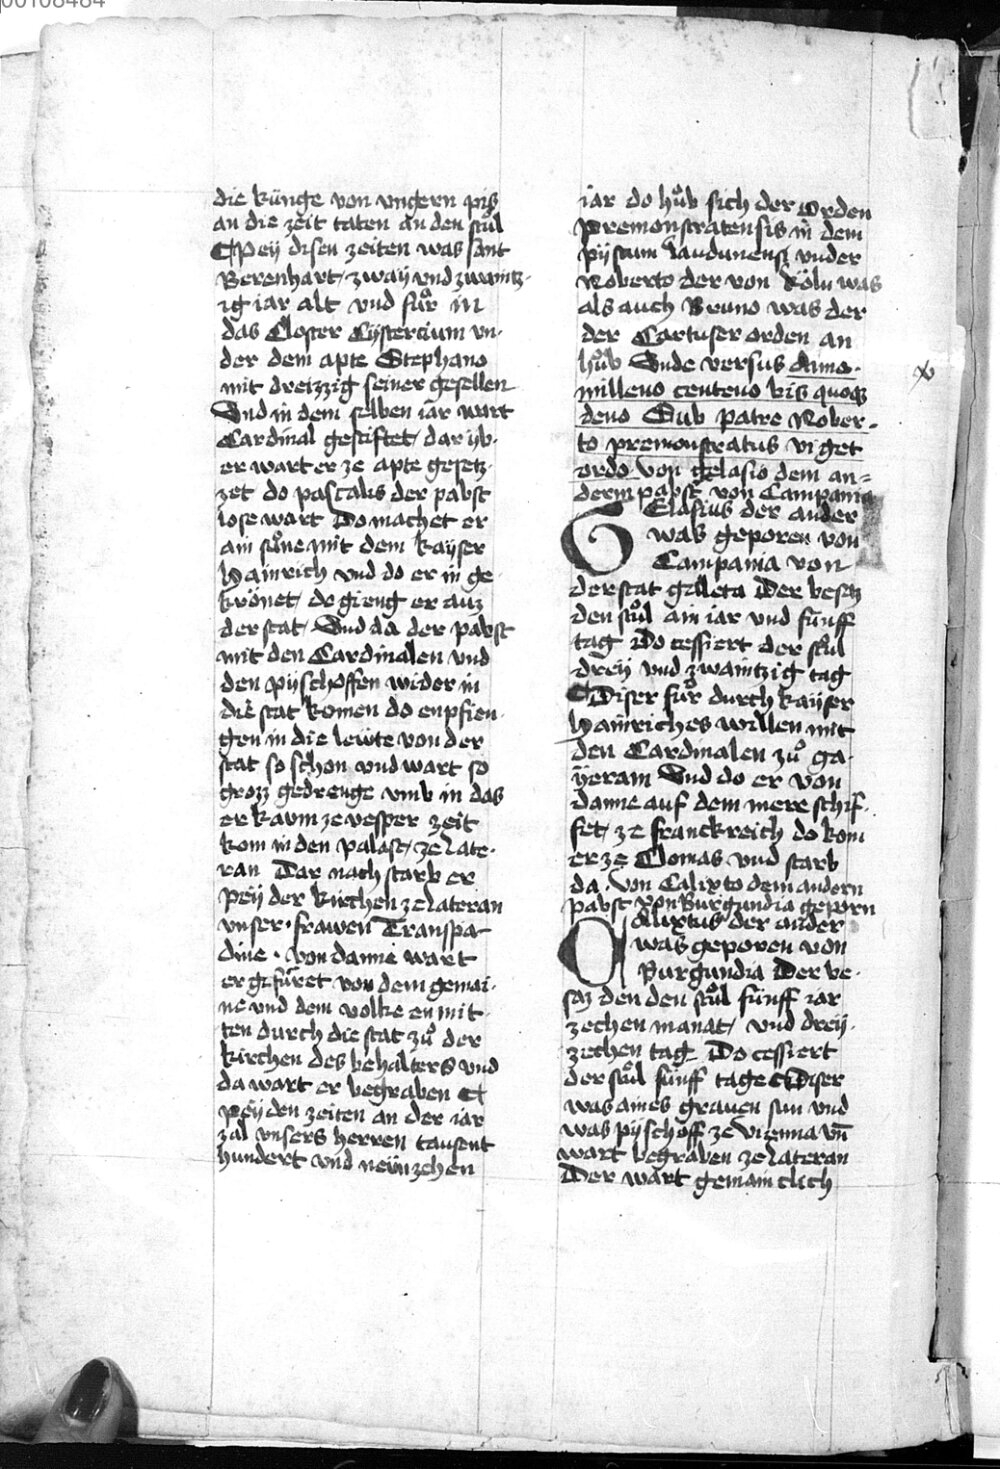 00108484
die künge von vngern piß
an die zeit taten an den stůl
¶ Peÿ disen zeiten was sant
Berenhart / zwaÿ vnd zwaintz-
ig iar alt vnd fůr in
das Closter Cÿstercium vn-
der dem apte Stephano
mit dreizzig seiner gesellen
Vnd in dem selben iar wart
Cardinal gestiftet / dar ÿb-
er wart er ze apte gesetz-
zet do pascalis der pabst
lose wart Do machet er
ain sůne mit dem kaÿser
Hainrich vnd do er in ge-
krönet / do gieng er auz
der stat / Vnd da der pabst
mit den Cardinalen vnd
den pÿschoffen wider in
die stat komen do enpfien-
gen in die lewte von der
stat so schon vnd wart so
grozz gedrenge vmb in das
er kaum ze vesper zeit
kom in den palast / ze late-
ran Dar nach starb er
peÿ der kirchen ze lateran
vnser frawen Transpa-
dine . von danne wart
er gefůret von dem gemai-
ne vnd dem volke en mit-
ten durch die stat zů der
kirchen des behalters vnd
da wart er begraben ¶
Peÿ den zeiten an der iar
zal vnsers herren tausent
hundert vnd neünzehen
iar do hůb sich der orden
premonstratensis in dem
pÿstum laudunens vnder
Roberto der von Köln was
als auch Bruno was der
der Cartuser orden an
hůb Vnde versus Anno.
milleno centeno bis quoqz
deno Sub patre Rober-
to premonstratus viget
ordo von gelasio dem an=
derm pabst von Campania
Gelasius der ander
was geporen von
Campania von
der stat galleta Der besaz
den stůl ain iar vnd fünff
tag Do cessiert der stůl
dreÿ vnd zwaintzig tag
¶ Diser fůr durch kaÿser
Hainriches willen mit
den Cardinalen zů ga-
ÿeram Vnd do er von
danne auf dem mere schif-
fet / ze franckreich do kom
er ze Clomas vnd starb
da . von Calixto dem andern
pabst von Burgundia geporn
Calixtus der ander
was geporen von
Burgundia Der be-
saz den den stůl fünff iar
zechen manat / vnd dreÿ-
zechen tag Do cessiert
der stůl fünff tage ¶ Diser
was aines grauen sun vnd
was pÿschoff ze vienna vn̄
wart begraben ze lateran
Der wart gemainclich